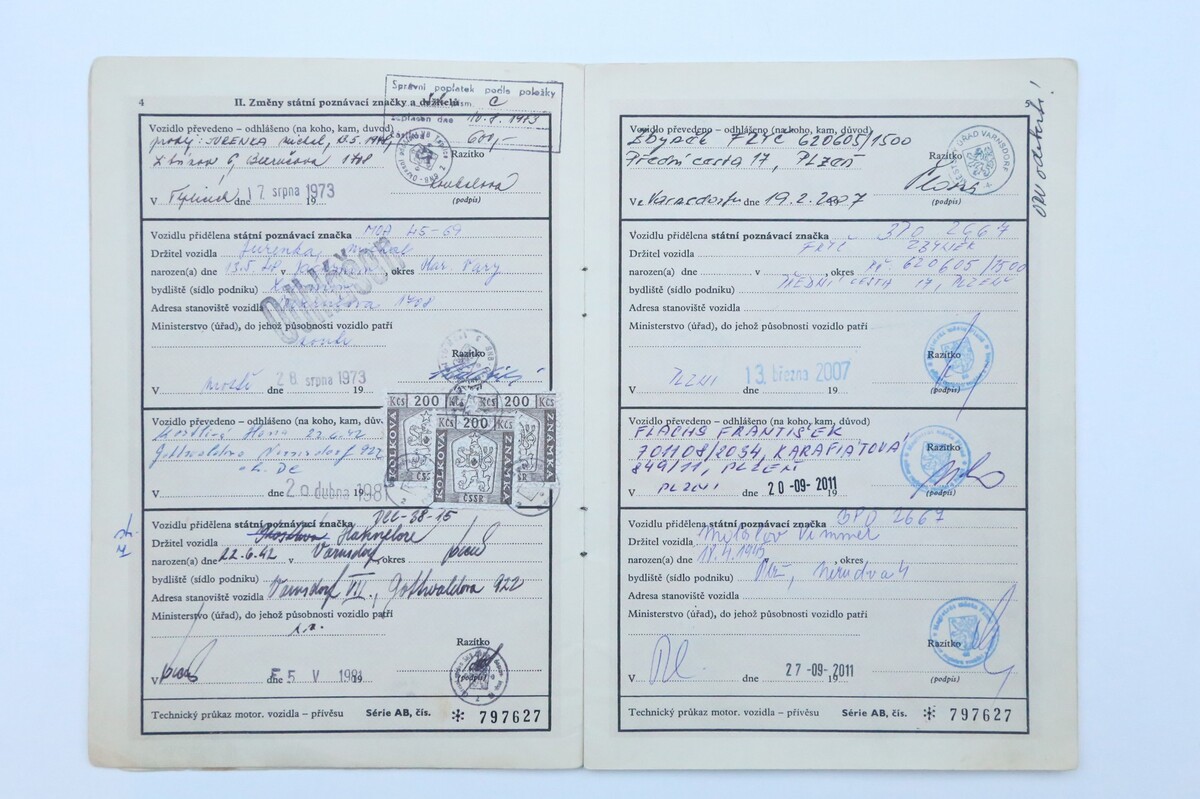 4
II. Změny státní poznávací značky a držitelů
Správní poplatek podle položky
sazeb. C
zaplacen dne 10.8.1973
částkou 600,-
Vozidlo převedeno – odhlášeno (na koho, kam, důvod)
1948
Razítko
V Teplicích dne 17 srpna 1973 19
(podpis)
Vozidlu přidělena státní poznávací značka MOA 45-69
Držitel vozidla Jurenka Michal
narozen(a) dne 13.5.48 v okres Kar. Vary
bydliště (sídlo podniku)
Adresa stanoviště vozidla 1708
ODHLÁŠENO
Ministerstvo (úřad), do jehož působnosti vozidlo patří
Razítko
V Mostě dne 28 srpna 1973 19
Kčs 200 Kčs 200
Kčs 200
KOLKOVÁ ZNÁMKA
KOLKOVÁ ZNÁMKA
ČSSR
Vozidlo převedeno – odhlášeno (na koho, kam, důvod)
22.6.42
Gottwaldova Varnsdorf 922
ok. DC
V dne 20 dubna 1981
Vozidlu přidělena státní poznávací značka DCC-38-15
Držitel vozidla Hannelore
narozen(a) dne 22.6.42 v Varnsdorf, okres
bydliště (sídlo podniku)
Adresa stanoviště vozidla Varnsdorf VII., Gottwaldova 922
Ministerstvo (úřad), do jehož působnosti vozidlo patří
Razítko
V dne 5 V 1981 19
(podpis)
Technický průkaz motor. vozidla – přívěsu Série AB, čís. ✻ 797627
5
Vozidlo převedeno – odhlášeno (na koho, kam, důvod)
Zbyněk FRYČ 620605/1500
Přední cesta 17, PLZEŇ
Razítko
MĚSTSKÝ ÚŘAD VARNSDORF
Ve Varnsdorfu dne 19.2.2007
(podpis)
ORV odevzdáno!
Vozidlu přidělena státní poznávací značka 3P0 2667
Držitel vozidla FRYČ ZBYNĚK
narozen(a) dne v , okres 620605/1500
bydliště (sídlo podniku) PŘEDNÍ CESTA 17, PLZEŇ
Adresa stanoviště vozidla
Ministerstvo (úřad), do jehož působnosti vozidlo patří
Razítko
V PLZNI dne 13. března 2007 19
Vozidlo převedeno – odhlášeno (na koho, kam, důvod)
FLACHS FRANTIŠEK
701108/2054, KARAFIÁTOVÁ
849/11, PLZEŇ
Razítko
V PLZNI dne 20-09-2011 19
(podpis)
Vozidlu přidělena státní poznávací značka 3P0 2667
Držitel vozidla Miloslav Vimmer
narozen(a) dne 18.4.1945 v , okres
bydliště (sídlo podniku) Plz., Nerudova 4
Adresa stanoviště vozidla
Ministerstvo (úřad), do jehož působnosti vozidlo patří
Razítko
V Pl dne 27-09-2011 19
(podpis)
Technický průkaz motor. vozidla – přívěsu Série AB, čís. ✻ 797627